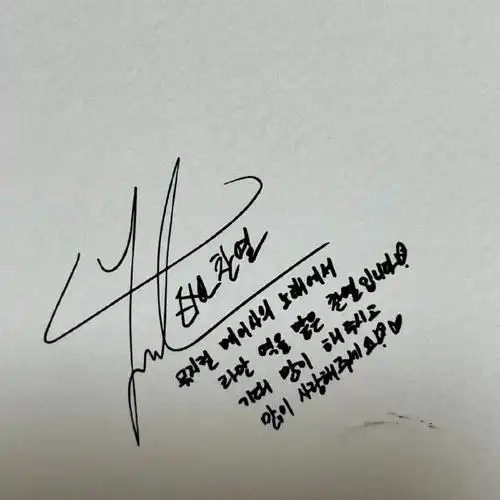 EXO 찬열
뮤지컬 메이사의 노래에서
라만 역을 맡은 찬열입니다♡!
기대 많이 해 주시고
많이 사랑해주세요!♡